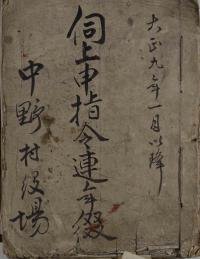 大正九年一月以降
伺上申指令連年綴
中野村役場